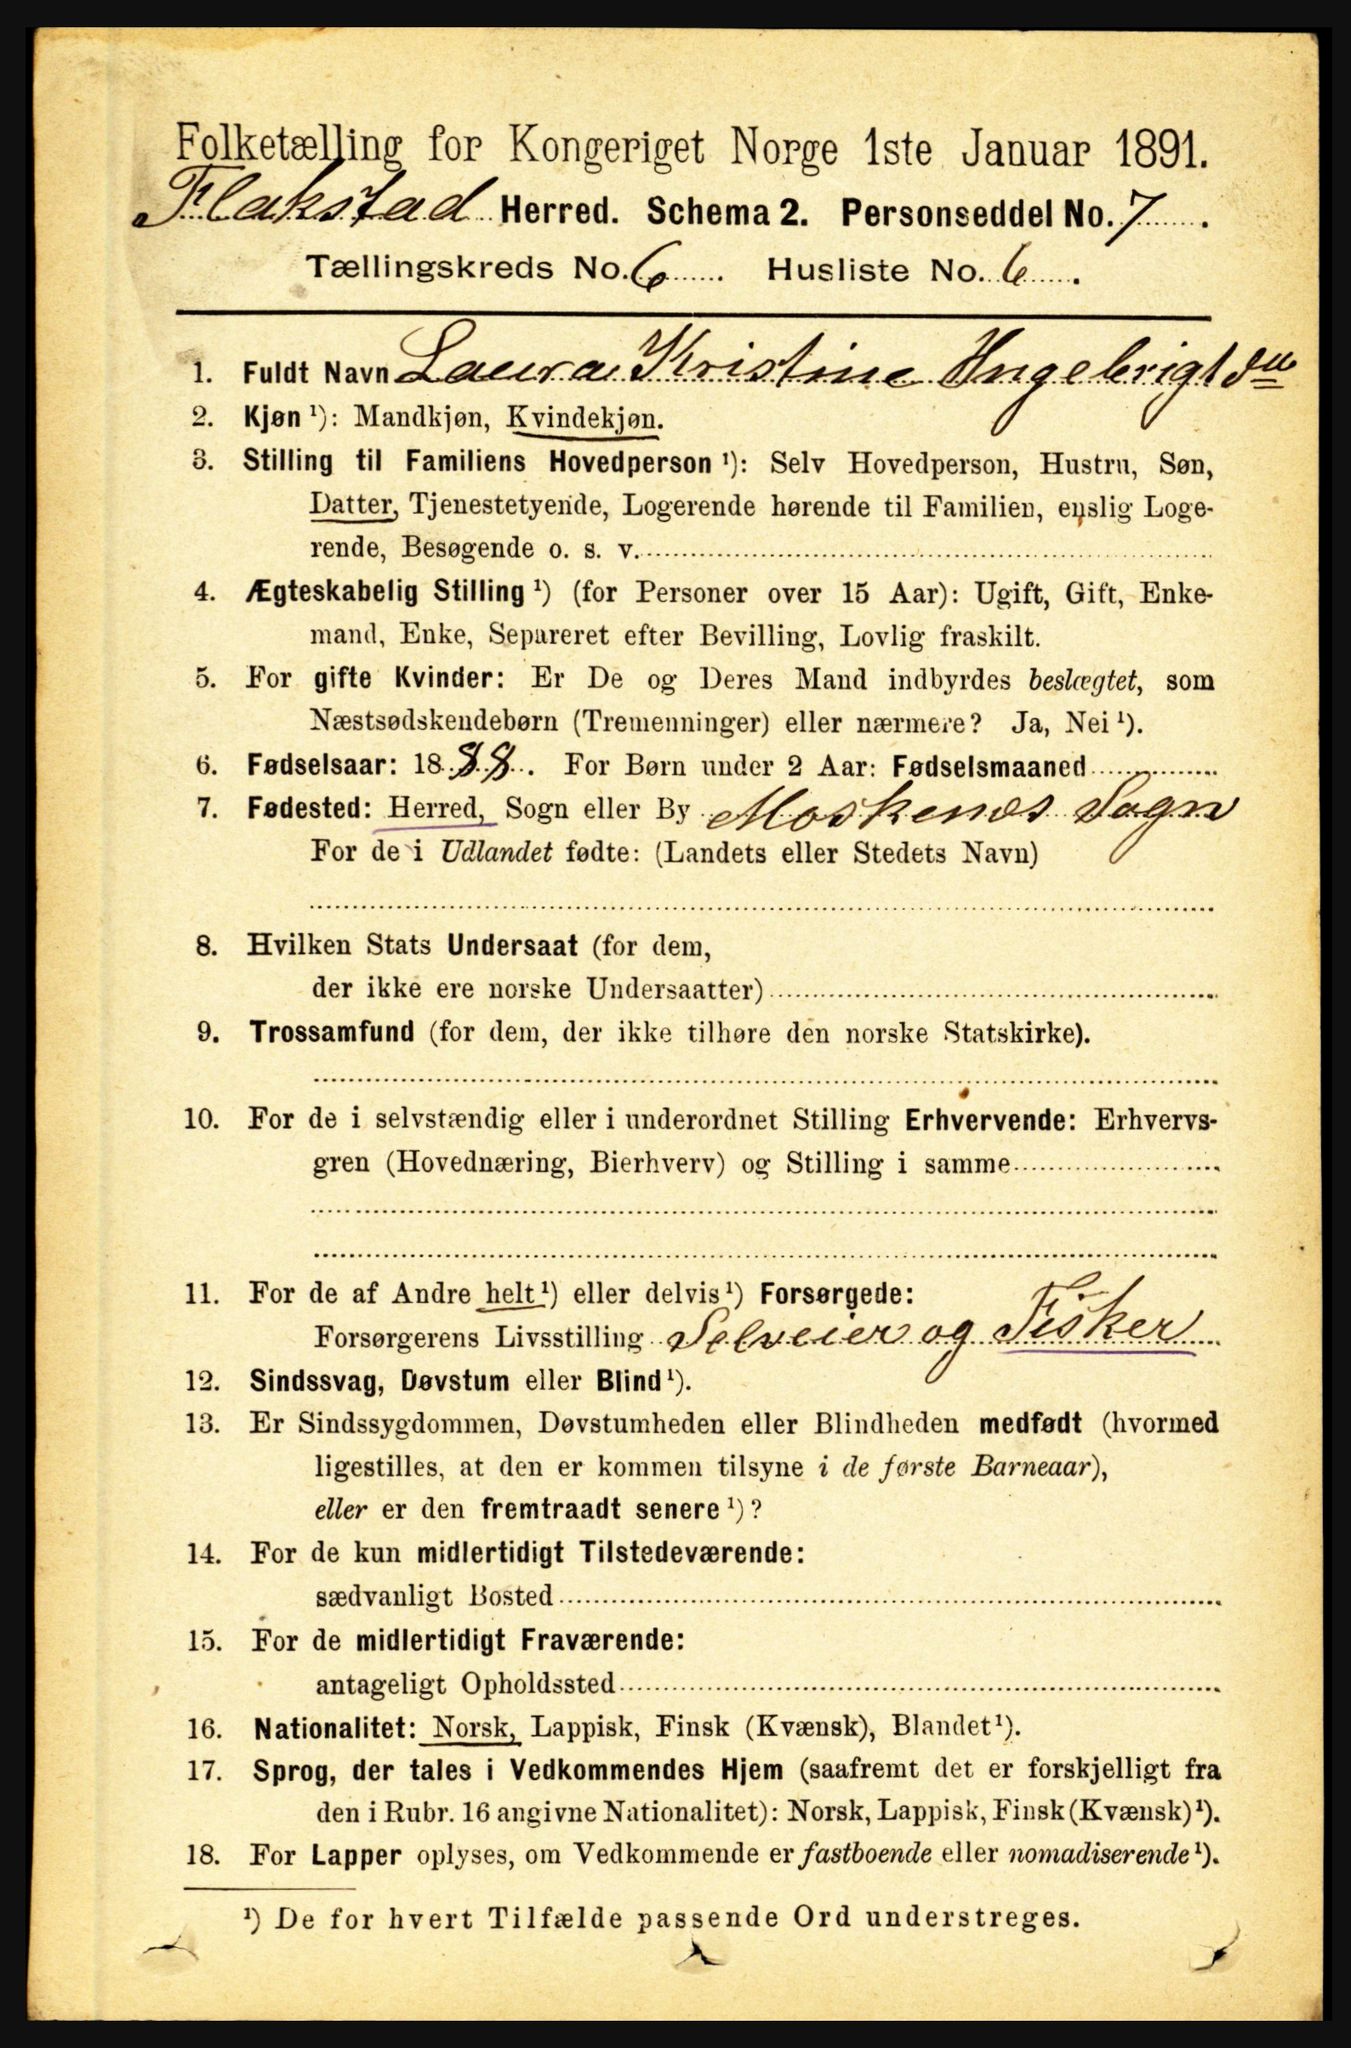 Folketælling for Kongeriget Norge 1ste Januar 1891.
Flakstad Herred. Schema 2. Personseddel No. 7.
Tællingskreds No. 6. Husliste No. 6.
1. Fuldt Navn Laura Kristine Ingebrigtdtr
2. Kjøn ¹): Mandkjøn, Kvindekjøn.
3. Stilling til Familiens Hovedperson ¹): Selv Hovedperson, Hustru, Søn,
Datter, Tjenestetyende, Logerende hørende til Familien, enslig Loge-
rende, Besøgende o. s. v.
4. Ægteskabelig Stilling ¹) (for Personer over 15 Aar): Ugift, Gift, Enke-
mand, Enke, Separeret efter Bevilling, Lovlig fraskilt.
5. For gifte Kvinder: Er De og Deres Mand indbyrdes beslægtet, som
Næstsødskendebørn (Tremenninger) eller nærmere? Ja, Nei ¹).
6. Fødselsaar: 1888. For Børn under 2 Aar: Fødselsmaaned
7. Fødested: Herred, Sogn eller By Moskenes Sogn
For de i Udlandet fødte: (Landets eller Stedets Navn)
8. Hvilken Stats Undersaat (for dem,
der ikke ere norske Undersaatter)
9. Trossamfund (for dem, der ikke tilhøre den norske Statskirke).
10. For de i selvstændig eller i underordnet Stilling Erhvervende: Erhvervs-
gren (Hovednæring, Bierhverv) og Stilling i samme
11. For de af Andre helt ¹) eller delvis ¹) Forsørgede:
Forsørgerens Livsstilling Selveier og Fisker
12. Sindssvag, Døvstum eller Blind ¹).
13. Er Sindssygdommen, Døvstumheden eller Blindheden medfødt (hvormed
ligestilles, at den er kommen tilsyne i de første Barneaar),
eller er den fremtraadt senere ¹)?
14. For de kun midlertidigt Tilstedeværende:
sædvanligt Bosted
15. For de midlertidigt Fraværende:
antageligt Opholdssted
16. Nationalitet: Norsk, Lappisk, Finsk (Kvænsk), Blandet ¹).
17. Sprog, der tales i Vedkommendes Hjem (saafremt det er forskjelligt fra
den i Rubr. 16 angivne Nationalitet): Norsk, Lappisk, Finsk (Kvænsk) ¹).
18. For Lapper oplyses, om Vedkommende er fastboende eller nomadiserende ¹).
¹) De for hvert Tilfælde passende Ord understreges.